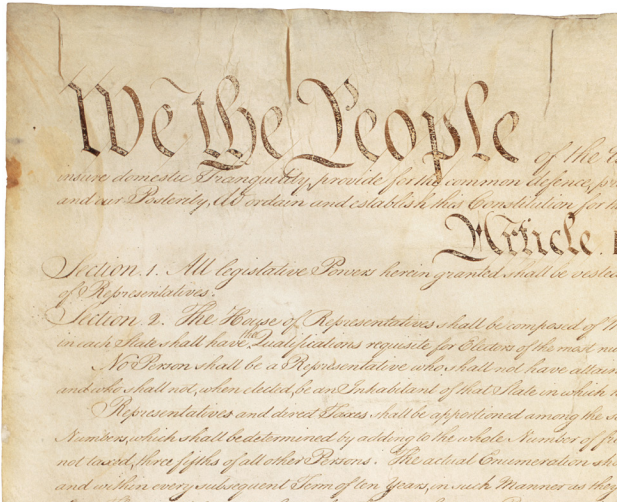 We the People of the
insure domestic Tranquility, provide for the common defence,
and our Posterity, do ordain and establish this Constitution for
Article.
Section. 1. All legislative Powers herein granted shall be vested
of Representatives.
Section. 2. The House of Representatives shall be composed of
in each State shall have the Qualifications requisite for Electors of the most
No Person shall be a Representative who shall not have
and who shall not, when elected, be an Inhabitant of that State in which
Representatives and direct Taxes shall be apportioned among the
Numbers, which shall be determined by adding to the whole Number of
not taxed, three fifths of all other Persons. The actual Enumeration
and within every subsequent Term of ten Years, in such Manner as they